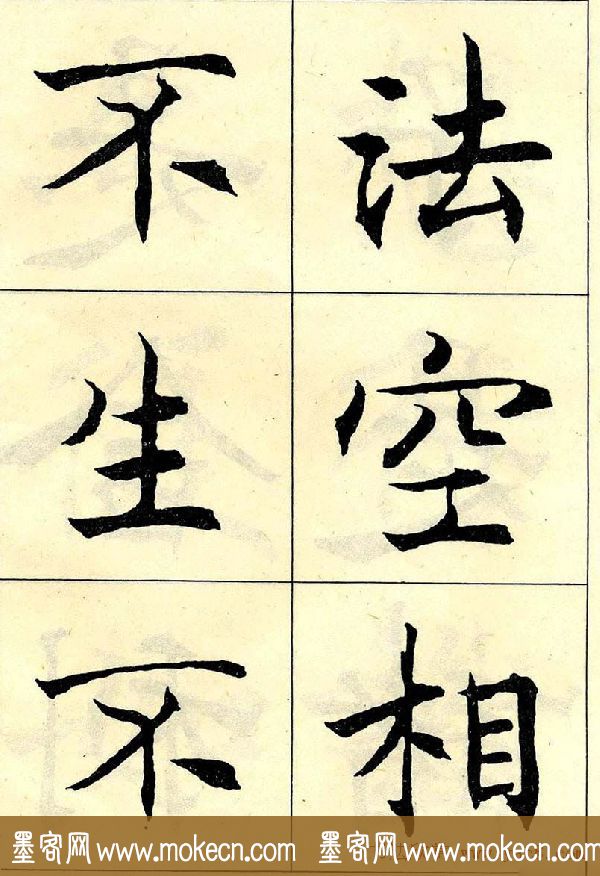 法空相
不生不
墨客网 www.mokecn.com 墨客网 www.mokecn.com